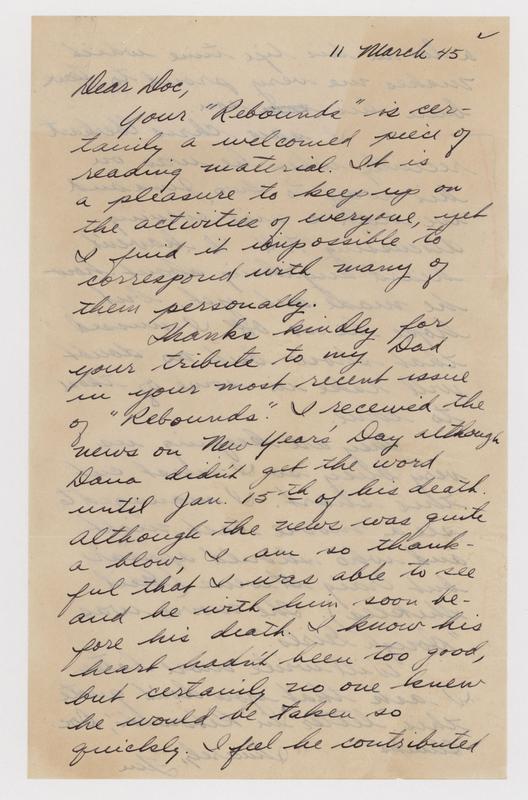 11 March 45
Dear Doc,
Your "Rebounds" is cer-
tainly a welcomed piece of
reading material. It is
a pleasure to keep up on
the activities of everyone, yet
I find it impossible to
correspond with many of
them personally.
Thanks kindly for
your tribute to my Dad
in your most recent issue
of "Rebounds". I received the
news on New Year's Day although
Dana didn't get the word
until Jan. 15th of his death.
Although the news was quite
a blow, I am so thank-
ful that I was able to see
and be with him soon be-
fore his death. I know his
heart hadn't been too good,
but certainly no one knew
he would be taken so
quickly. I feel he contributed